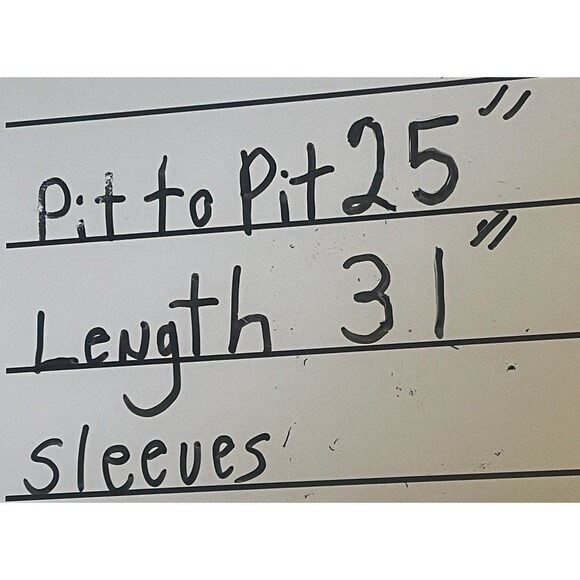 Pit to Pit 25"
Length 31"
sleeves